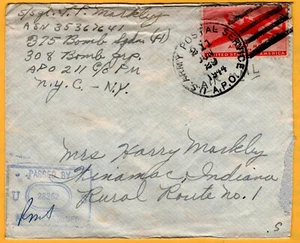 S/Sgt. J. F. Markley
ASN 35367641
375 Bomb Sqdn (H)
308 Bomb Grp.
APO 211 c/o Pm
N.Y.C. - N.Y.
U.S. ARMY POSTAL SERVICE
1944
A.P.O.
Mrs Harry Markley
Winamac, Indiana
Rural Route no. 1
PASSED BY
U